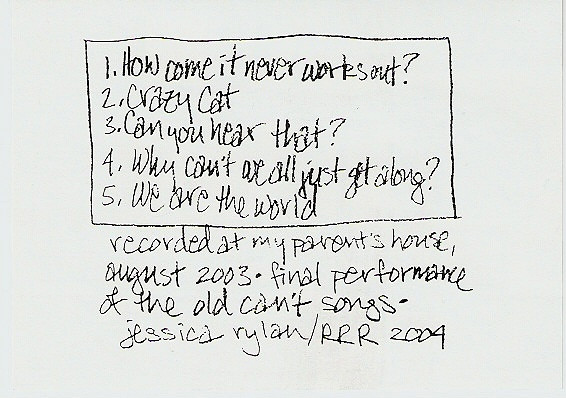 1. How come it never works out?
2. Crazy Cat
3. Can you hear that?
4. Why can't we all just get along?
5. We are the world
recorded at my parent's house,
august 2003. final performance
of the old can't songs.
jessica rylan/RRR 2004